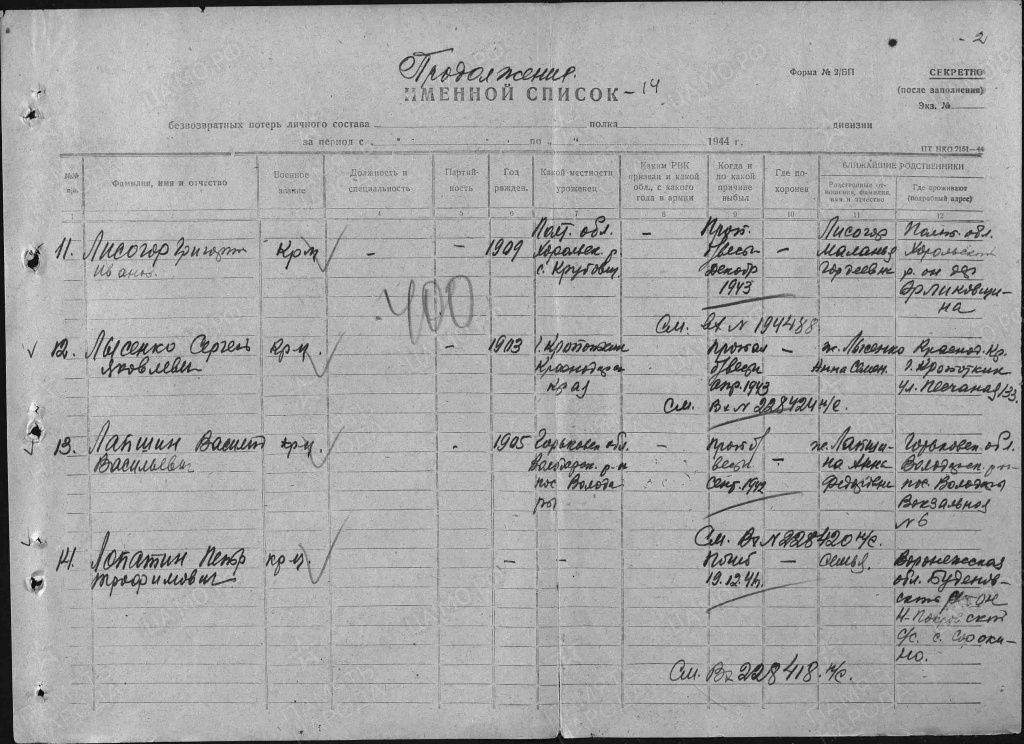 - 2
Продолжение
Форма № 2/БП
СЕКРЕТНО
(после заполнения)
Экз. №
ИМЕННОЙ СПИСОК - 14
безвозвратных потерь личного состава полка дивизии
за период с " " по " 1944 г.
ПТ НКО 7151—44
№№ пр.
Фамилия, имя и отчество
Военное звание
Должность и специальность
Партийность
Год рожден.
Какой местности уроженец
Каким РВК призван и какой обл., с какого года в армии
Когда и по какой причине выбыл
Где похоронен
БЛИЖАЙШИЕ РОДСТВЕННИКИ
Родственные отношения, фамилия, имя и отчество
Где проживают (подробный адрес)
1 4 5 6 7 8 9 10 11 12
11. Лисогор Григорий Кр-ц - - 1909 Полт. обл. - Проп. - Лисогор Полт. обл.
Иванов. Хорольск. р. б/вести Маланья Хорольский
с. декабр Гордеевна р-он
1943
400
См. Вх N 194488.
12. Лысенко Сергей Кр-ц. - - 1903 г. Кропоткин Пропал - ж. Лысенко Краснод. Кр.
Яковлевич Краснодарск б/вести Анна Семен. г. Кропоткин
край апр. 1943 ул. Песчаная, 133.
См. Вх N 228424 н/с.
13. Лапшин Василий кр-ц - - 1905 Горьковск обл. - Проп б/ - ж. Лапши- Горьковск. обл.
Васильевич Володарск. р-н вести на Анна Володарск. р-н
пос. Волода сент. 1942 пос. Володары
ры Вокзальная
N 6
См. Вх N 228420 н/с.
14. Лопатин Петр кр-ц - - Погиб - семья. Воронежская
Трофимович 19.12.42. обл. Буденов-
ский р-он
Н-Покровский
с/с. с. Сороки-
но.
См. Вх 228418. н/с.